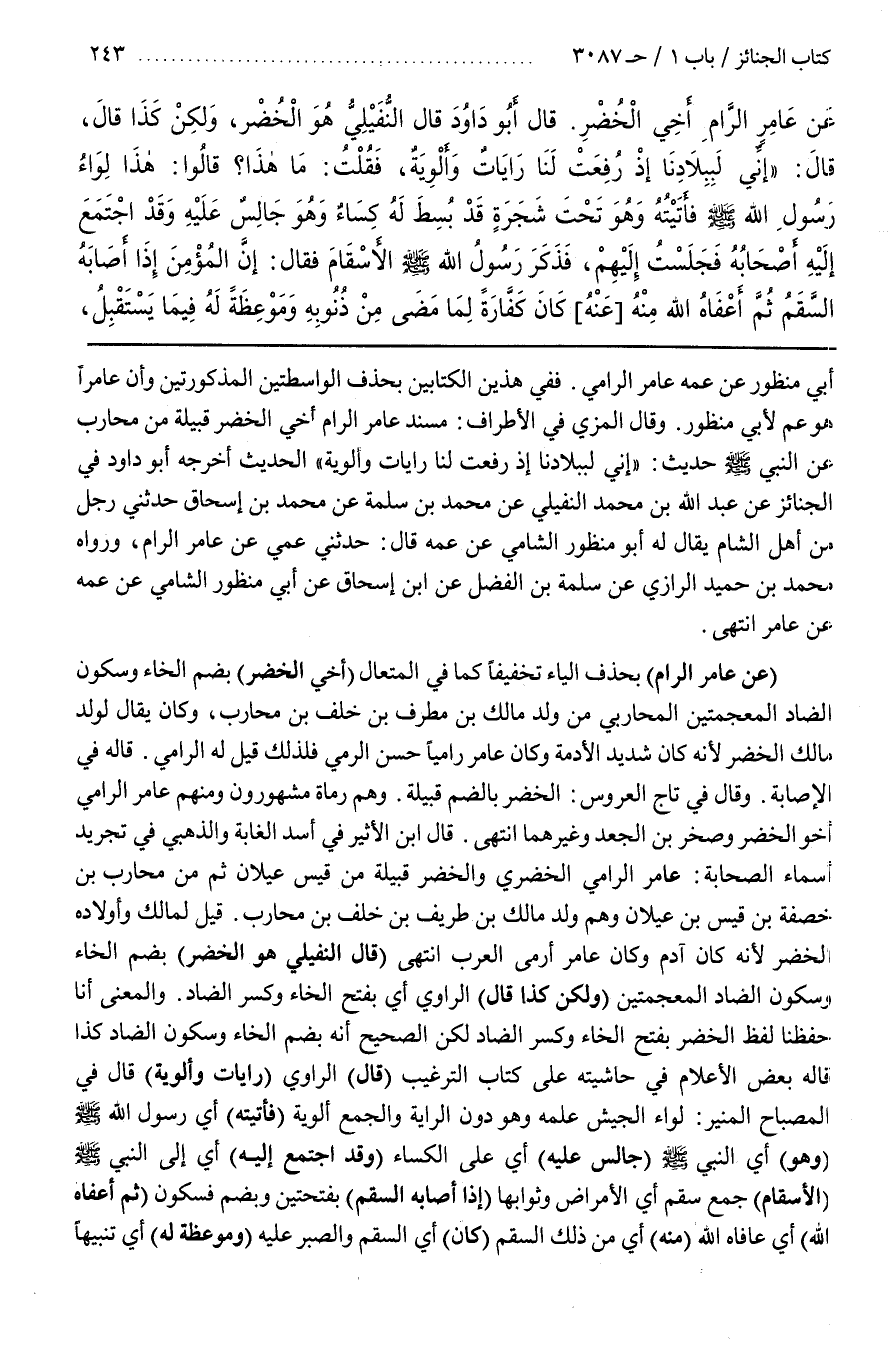 كتاب الجنائز / باب ١ / حـ ٣٠٨٧ ............................................... ٢٤٣
عَن عَامِرِ الرَّامِ أَخِي الْخُضْرِ. قال أَبُو دَاوُدَ قال النُّفَيْلِيُّ هُوَ الْخُضْر، وَلكِنْ كَذَا قالَ،
قالَ: «إنِّي لَبِبِلَادِنَا إذْ رُفِعَتْ لَنَا رَايَاتٌ وَأَلْوِيَةٌ، فَقُلْتُ: مَا هٰذَا؟ قالُوا: هٰذَا لِوَاءُ
رَسُولِ الله ﷺ فأَتَيْتُهُ وَهُوَ تَحْتَ شَجَرَةٍ قَدْ بُسِطَ لَهُ كِسَاءٌ وَهُوَ جَالِسٌ عَلَيْهِ وَقَدْ اجْتَمَعَ
إلَيْهِ أَصْحَابُهُ فَجَلَسْتُ إلَيْهِمْ، فَذَكَرَ رَسُولُ الله ﷺ الأَسْقَامَ فقال: إنَّ المُؤْمِنَ إذَا أَصَابَهُ
السَّقَمُ ثُمَّ أَعْفَاهُ الله مِنْهُ [عَنْهُ] كَانَ كَفَّارَةً لِمَا مَضَى مِنْ ذُنُوبِهِ وَمَوْعِظَةً لَهُ فِيمَا يَسْتَقْبِلُ،
أبي منظور عن عمه عامر الرامي. ففي هذين الكتابين بحذف الواسطتين المذكورتين وأن عامراً
هو عم لأبي منظور. وقال المزي في الأطراف: مسند عامر الرام أخي الخضر قبيلة من محارب
عن النبي ﷺ حديث: «إني لببلادنا إذ رفعت لنا رايات وألوية» الحديث أخرجه أبو داود في
الجنائز عن عبد الله بن محمد النفيلي عن محمد بن سلمة عن محمد بن إسحاق حدثني رجل
من أهل الشام يقال له أبو منظور الشامي عن عمه قال: حدثني عمي عن عامر الرام، ورواه
محمد بن حميد الرازي عن سلمة بن الفضل عن ابن إسحاق عن أبي منظور الشامي عن عمه
عن عامر انتهى.
(عن عامر الرام) بحذف الياء تخفيفاً كما في المتعال (أخي الخضر) بضم الخاء وسكون
الضاد المعجمتين المحاربي من ولد مالك بن مطرف بن خلف بن محارب، وكان يقال لولد
مالك الخضر لأنه كان شديد الأدمة وكان عامر رامياً حسن الرمي فلذلك قيل له الرامي. قاله في
الإصابة. وقال في تاج العروس: الخضر بالضم قبيلة. وهم رماة مشهورون ومنهم عامر الرامي
أخو الخضر وصخر بن الجعد وغيرهما انتهى. قال ابن الأثير في أسد الغابة والذهبي في تجريد
أسماء الصحابة: عامر الرامي الخضري والخضر قبيلة من قيس عيلان ثم من محارب بن
خصفة بن قيس بن عيلان وهم ولد مالك بن طريف بن خلف بن محارب. قيل لمالك وأولاده
الخضر لأنه كان آدم وكان عامر أرمى العرب انتهى (قال النفيلي هو الخضر) بضم الخاء
وسكون الضاد المعجمتين (ولكن كذا قال) الراوي أي بفتح الخاء وكسر الضاد. والمعنى أنا
حفظنا لفظ الخضر بفتح الخاء وكسر الضاد لكن الصحيح أنه بضم الخاء وسكون الضاد كذا
قاله بعض الأعلام في حاشيته على كتاب الترغيب (قال) الراوي (رايات وألوية) قال في
المصباح المنير: لواء الجيش علمه وهو دون الراية والجمع ألوية (فأتيته) أي رسول الله ﷺ
(وهو) أي النبي ﷺ (جالس عليه) أي على الكساء (وقد اجتمع إليه) أي إلى النبي ﷺ
(الأسقام) جمع سقم أي الأمراض وثوابها (إذا أصابه السقم) بفتحتين وبضم فسكون (ثم أعفاه
الله) أي عافاه الله (منه) أي من ذلك السقم (كان) أي السقم والصبر عليه (وموعظة له) أي تنبيهاً